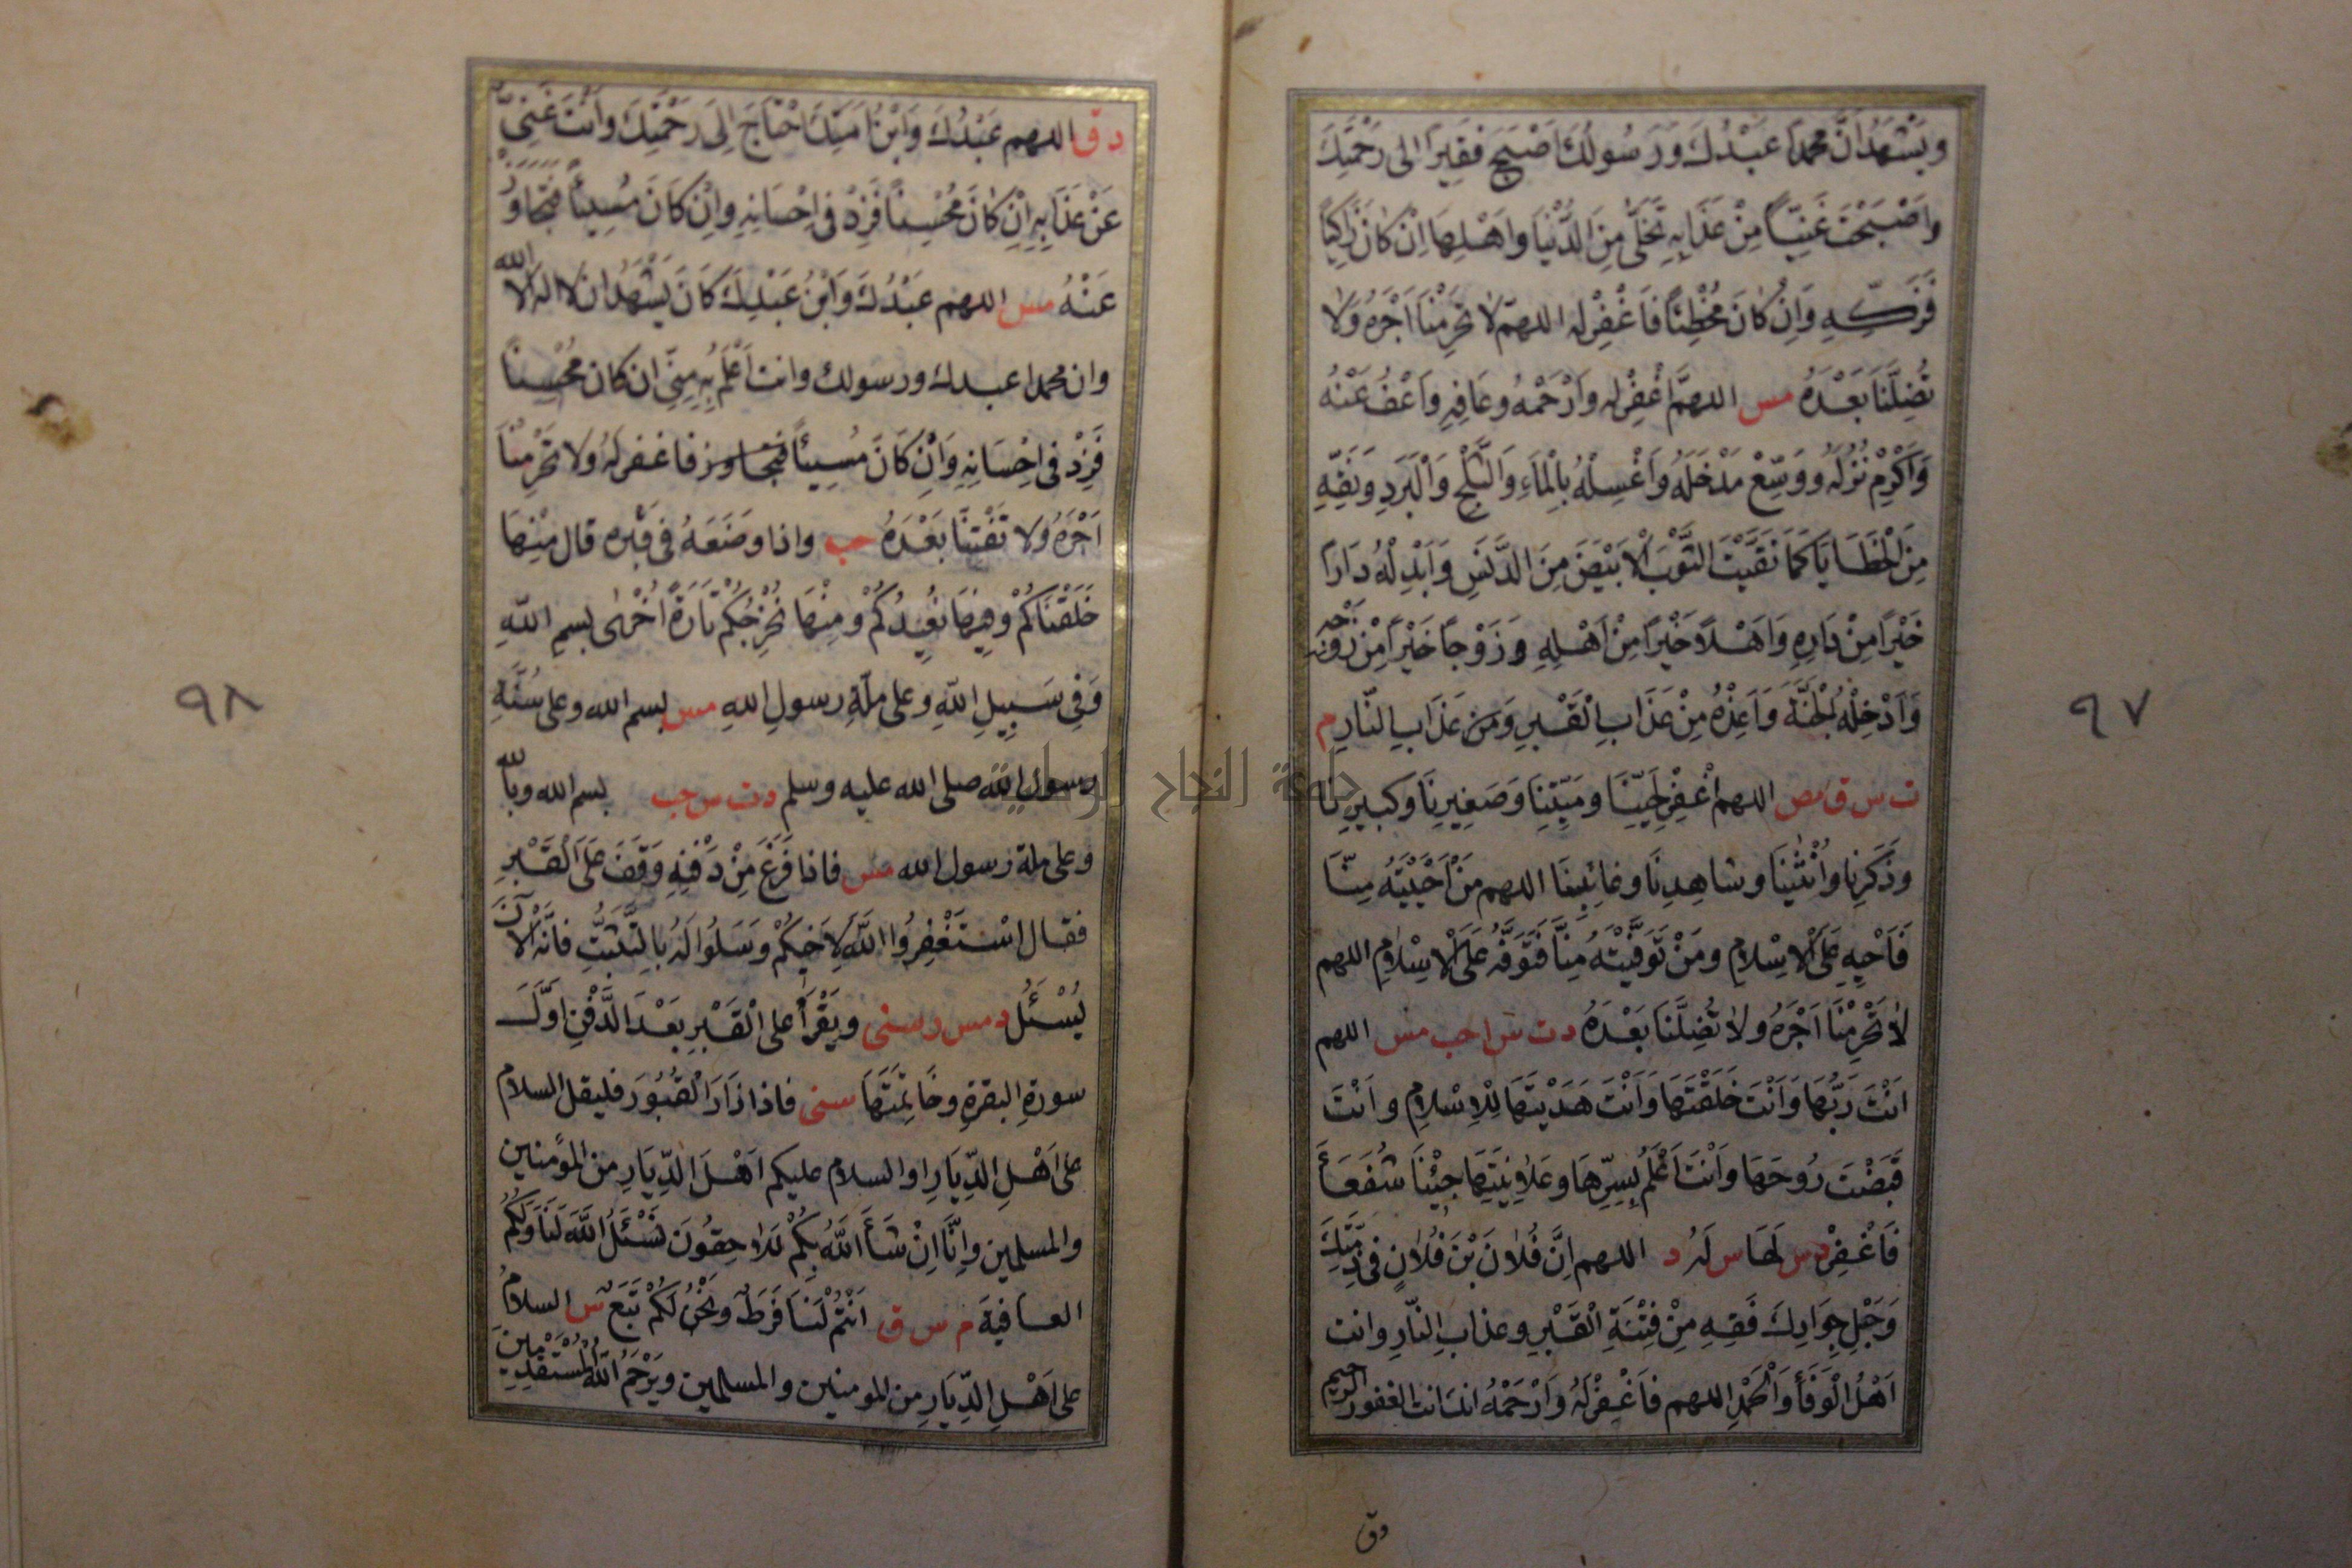 وَيَشْهَدُ اَنَّ مُحَمَّدًا عَبْدُكَ وَرَسُولُكَ اَصْبَحَ فَقِيرًا اِلى رَحْمَتِكَ
وَاَصْبَحْتَ غَنِيًّا مِنْ عَذَابِهِ تَخَلَّى مِنَ الدُّنْيَا وَاَهْلِهَا اِنْ كَانَ زَاكِيًا
فَزَكِّهِ وَاِنْ كَانَ مُخْطِئًا فَاغْفِرْ لَه اللهمّ لا تَحْرِمْنَا اَجْرَهُ وَلَا
تُضِلَّنَا بَعْدَهُ مس اللهمَّ اغْفِرْ لَه وَارْحَمْهُ وعَافِهِ وَاعْفُ عَنْهُ
وَاَكْرِمْ نُزُلَهُ وَوَسِّعْ مَدْخَلَهُ وَاغْسِلْهُ بِالْمَاءِ وَالثَّلْجِ وَالْبَرَدِ وَنَقِّهِ
مِنَ الْخَطَايَا كَمَا نَقَّيْتَ الثَّوْبَ الْاَبْيَضَ مِنَ الدَّنَسِ وَاَبْدِلْهُ دَارًا
خَيْرًا مِنْ دَارِهِ وَاَهْلًا خَيْرًا مِنْ اَهْلِهِ وَزَوْجًا خَيْرًا مِنْ زَوْجِه
وَاَدْخِلْهُ الْجَنَّةَ وَاَعِذْهُ مِنْ عَذَابِ الْقَبْرِ وَمِن عَذَابِ النَّارِ م
ت س ق مص اللهم اغْفِرْ لِحَيِّنَا ومَيِّتِنَا وَصَغِيرِنَا وَكبِيرِنَا
وَذَكَرِنا وَاُنْثَيْنَا وشاهِدِنَا وغائِبِنَا اللهم مَنْ اَحْيَيْتَه مِنَّا
فَاَحْيِهِ عَلَى الْاِسْلَامِ ومَنْ تَوَفَّيْتَهُ مِنَّا فَتَوَفَّهُ عَلَى الْاِسْلَامِ اللهم
لَا تَحْرِمْنَا اَجْرَهُ ولَا تُضِلَّنَا بَعْدَهُ د ت س ا حب مس اللهم
اَنْتَ رَبُّهَا وَاَنْتَ خَلَقْتَهَا وَاَنْتَ هَدَيْتَهَا لِلْاِسْلَامِ وَاَنْتَ
قَبَضْتَ رُوحَهَا وَاَنْتَ اَعْلَمُ بِسِرِّهَا وعَلَانِيَتِهَا جِئْنَا شُفَعَاءَ
فَاغْفِرْ د س لَهَا س لَهُ د اللهم اِنَّ فُلَانَ بْنَ فُلَانٍ فى ذِمَّتِكَ
وَحَبْلِ جِوَارِكَ فَقِهِ مِنْ فِتْنَةِ الْقَبْرِ وعذابِ النَّارِ وانت
اَهْلُ الْوَفَاءِ وَالْحَمْدِ اللهم فَاغْفِرْ لَهُ وَارْحَمْهُ انك انت الغفور الرحيم
د ق
٩٧
د ق اللهم عَبْدُكَ وَابْنُ اَمَتِكَ احْتَاجَ اِلَى رَحْمَتِكَ وَاَنْتَ غَنِىٌّ
عَنْ عَذَابِهِ اِنْ كَانَ مُحْسِنًا فَزِدْ فى اِحْسَانِهِ وَاِنْ كَانَ مُسِيئًا فَتَجَاوَزْ
عَنْهُ مس اللهم عَبْدُكَ وَابْنُ عَبْدِكَ كَانَ يَشْهَدُ ان لا اله الا الله
وان محمدا عبدك ورسولك وانت اَعْلَمُ بِهِ مِنِّى ان كان مُحْسِنًا
فَزِدْ فى اِحْسَانِهِ وَاِنْ كَانَ مُسِيئًا فتجاوز فاغفر لَهُ ولا تَحْرِمْنَا
اَجْرَهُ ولا تَفْتِنَّا بَعْدَهُ حب واذا وضَعَهُ فى قبره قال مِنْهَا
خَلَقْنَاكُمْ وفِيهَا نُعِيدُكُمْ ومِنْهَا نُخْرِجُكُمْ تَارَةً اُخْرٰى بسمِ اللّهِ
وَفِى سَبِيلِ اللّهِ وعلى ملّةِ رسولِ اللهِ مس بسم الله وعلى سُنَّةِ
رسولِ الله صلى الله عليه وسلم د ت س حب بسم الله وبالله
وعلى ملة رسول الله مس فاذا فَرَغَ مِنْ دَفْنِهِ وَقَفَ عَلَى الْقَبْرِ
فقال اسْتَغْفِرُوا اللّهَ لِاَخِيكُمْ وسَلُوا لَهُ بِالتَّثَبُّتِ فانَّه الْآنَ
يُسْئَلُ د مس ر سنى ويَقْرَأُ على الْقَبْرِ بَعْدَ الدَّفْنِ اَوَّلَ
سورةِ البقرةِ وخَاتِمَتَهَا سنى فاذا زَارَ الْقُبُورَ فليقل السلام
على اَهْلِ الدِّيَارِ او السلام عليكم اَهْلَ الدِّيَارِ من المؤمنين
والمسلمين وَاِنَّا اِنْ شَاءَ اللّهُ بِكُمْ لَلَاحِقُونَ نَسْئَلُ اللّهَ لَنَا وَلَكُمُ
العافيةَ م س ق اَنْتُمْ لَنَا فَرَطٌ ونَحْنُ لَكُمْ تَبَعٌ س السلامُ
على اَهْلِ الدِّيَارِ من المومنين والمسلمين ويَرْحَمُ اللّهُ الْمُسْتَقْدِمِينَ
٩٨
جامعة النجاح الوطنية